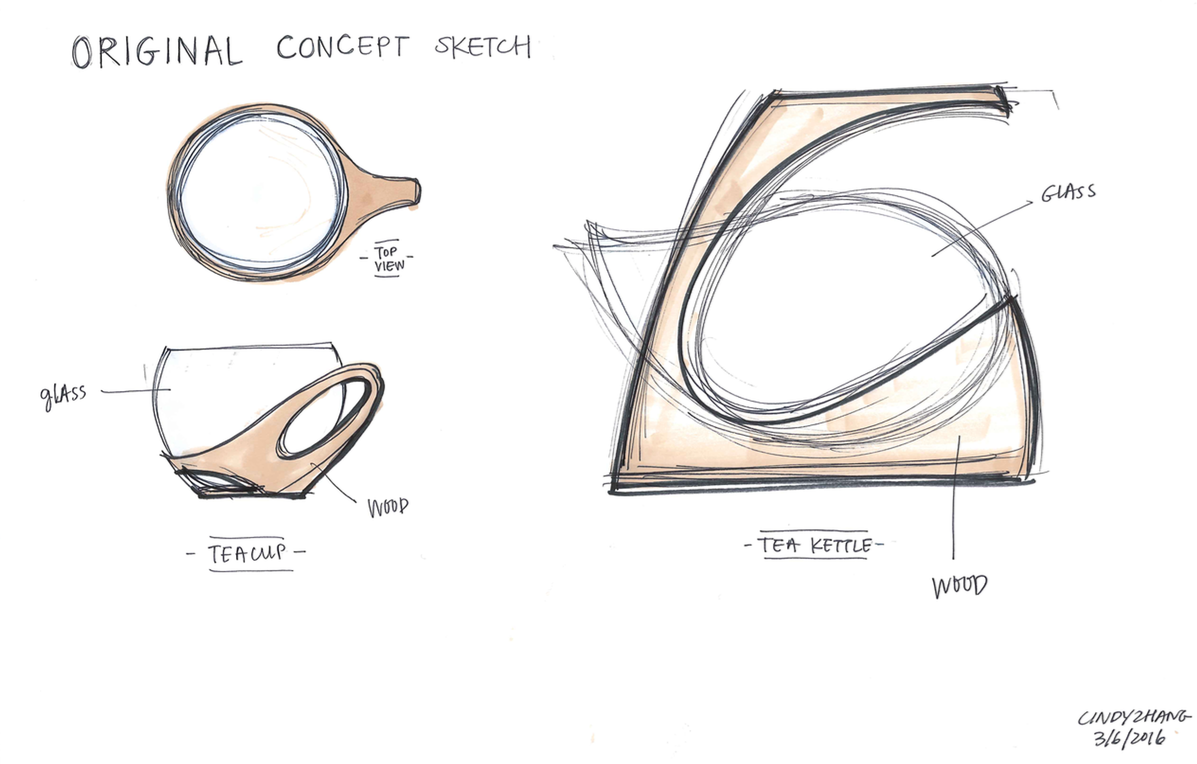 ORIGINAL CONCEPT SKETCH
- TOP
VIEW -
gLASS
WOOD
- TEACUP -
GLASS
- TEA KETTLE -
WOOD
CINDYZHANG
3/6/2016